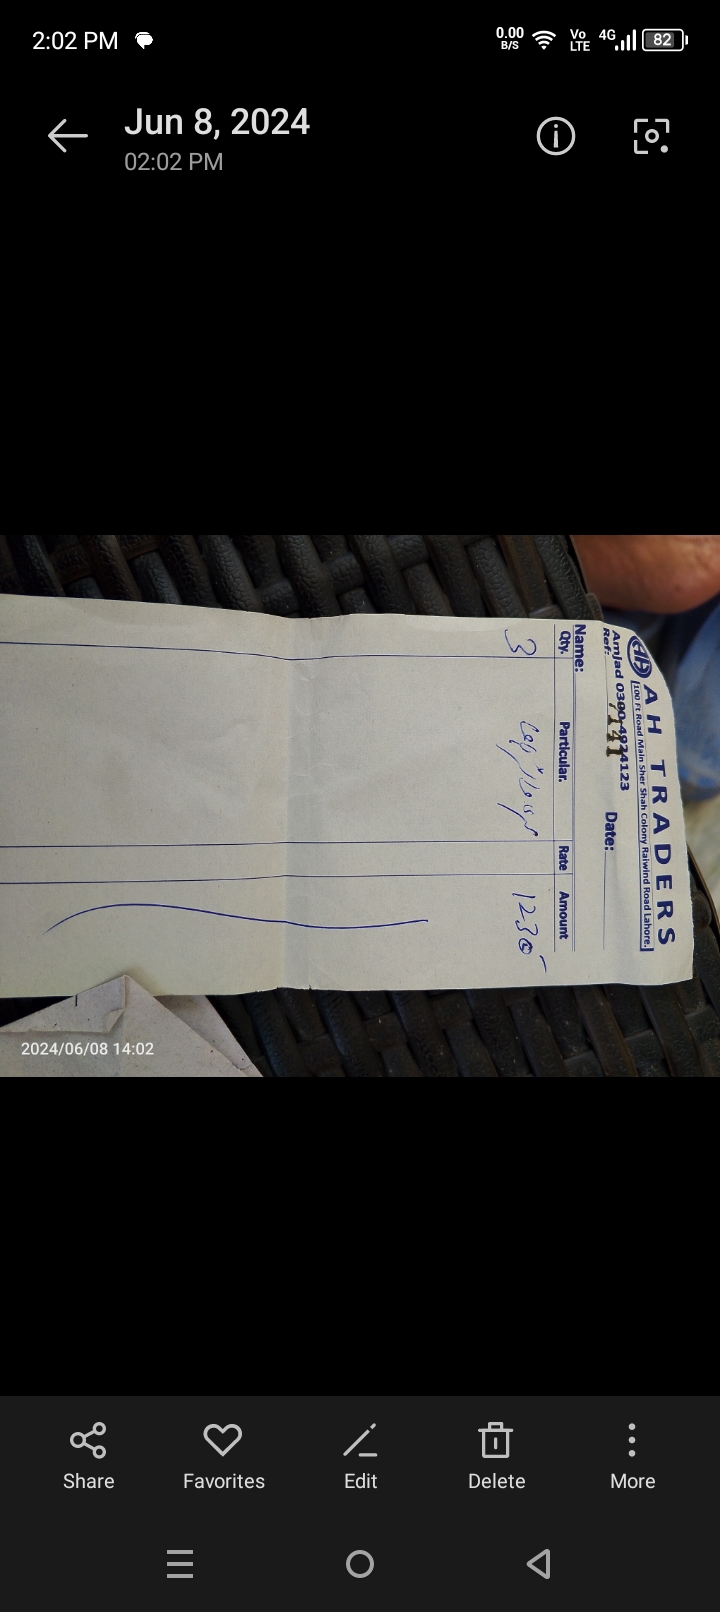 2:02 PM
0.00 B/S Vo LTE 4G 82
Jun 8, 2024
02:02 PM
AH TRADERS
100 Ft Road Main Sher Shah Colony Raiwind Road Lahore.
Amjad 0300-4924123
Ref: 7141 Date:
Name:
Qty. Particular. Rate Amount
3 1230
2024/06/08 14:02
Share Favorites Edit Delete More